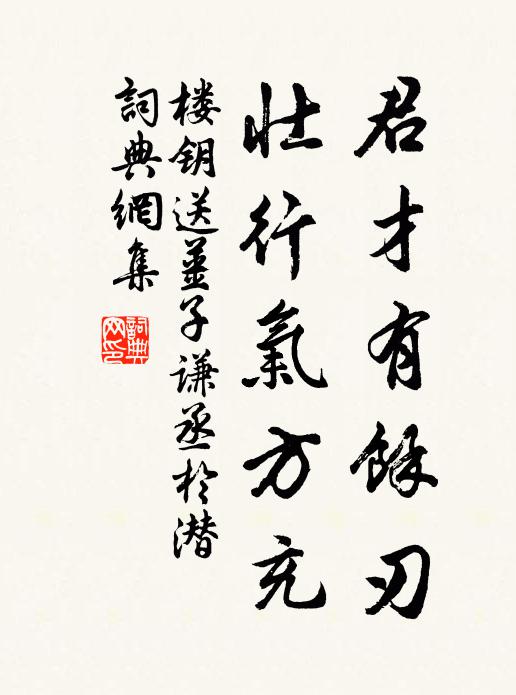 君才有餘刃
壮行氣方充
楼钥送姜子谦丞於潜
詞典網集
詞典网印